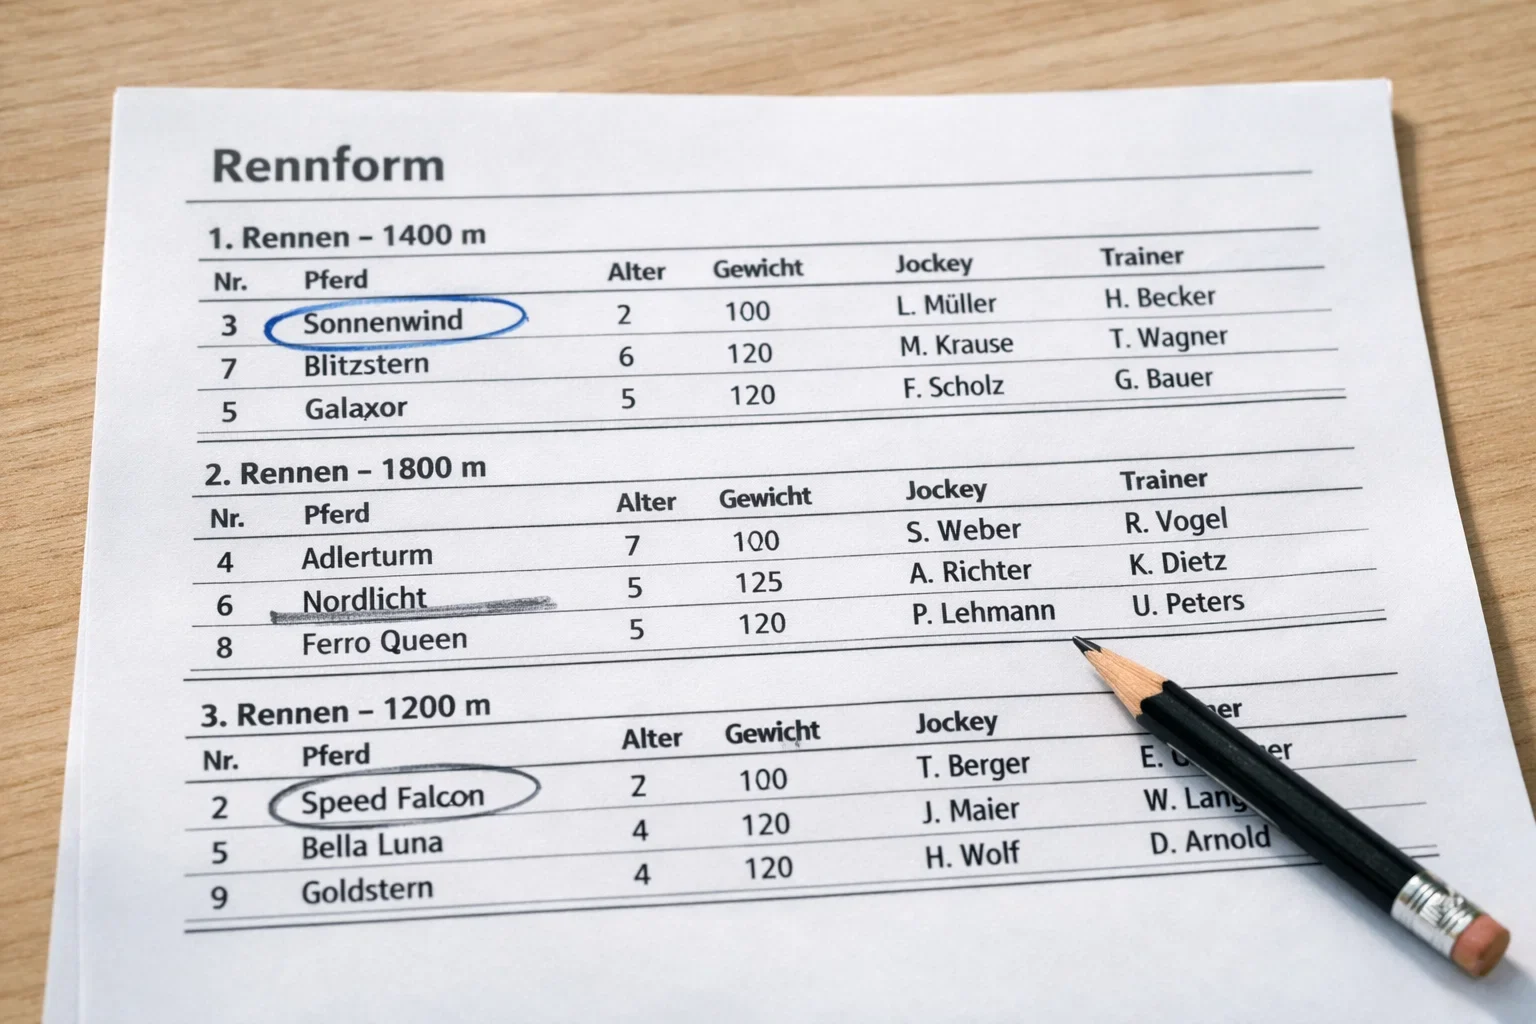 Rennform
1. Rennen – 1400 m
Nr. Pferd Alter Gewicht Jockey Trainer
3 Sonnenwind 2 100 L. Müller H. Becker
7 Blitzstern 6 120 M. Krause T. Wagner
5 Galaxor 5 120 F. Scholz G. Bauer
2. Rennen – 1800 m
Nr. Pferd Alter Gewicht Jockey Trainer
4 Adlerturm 7 100 S. Weber R. Vogel
6 Nordlicht 5 125 A. Richter K. Dietz
8 Ferro Queen 5 120 P. Lehmann U. Peters
3. Rennen – 1200 m
Nr. Pferd Alter Gewicht Jockey
2 Speed Falcon 2 100 T. Berger E.
5 Bella Luna 4 120 J. Maier W.
9 Goldstern 4 120 H. Wolf D. Arnold